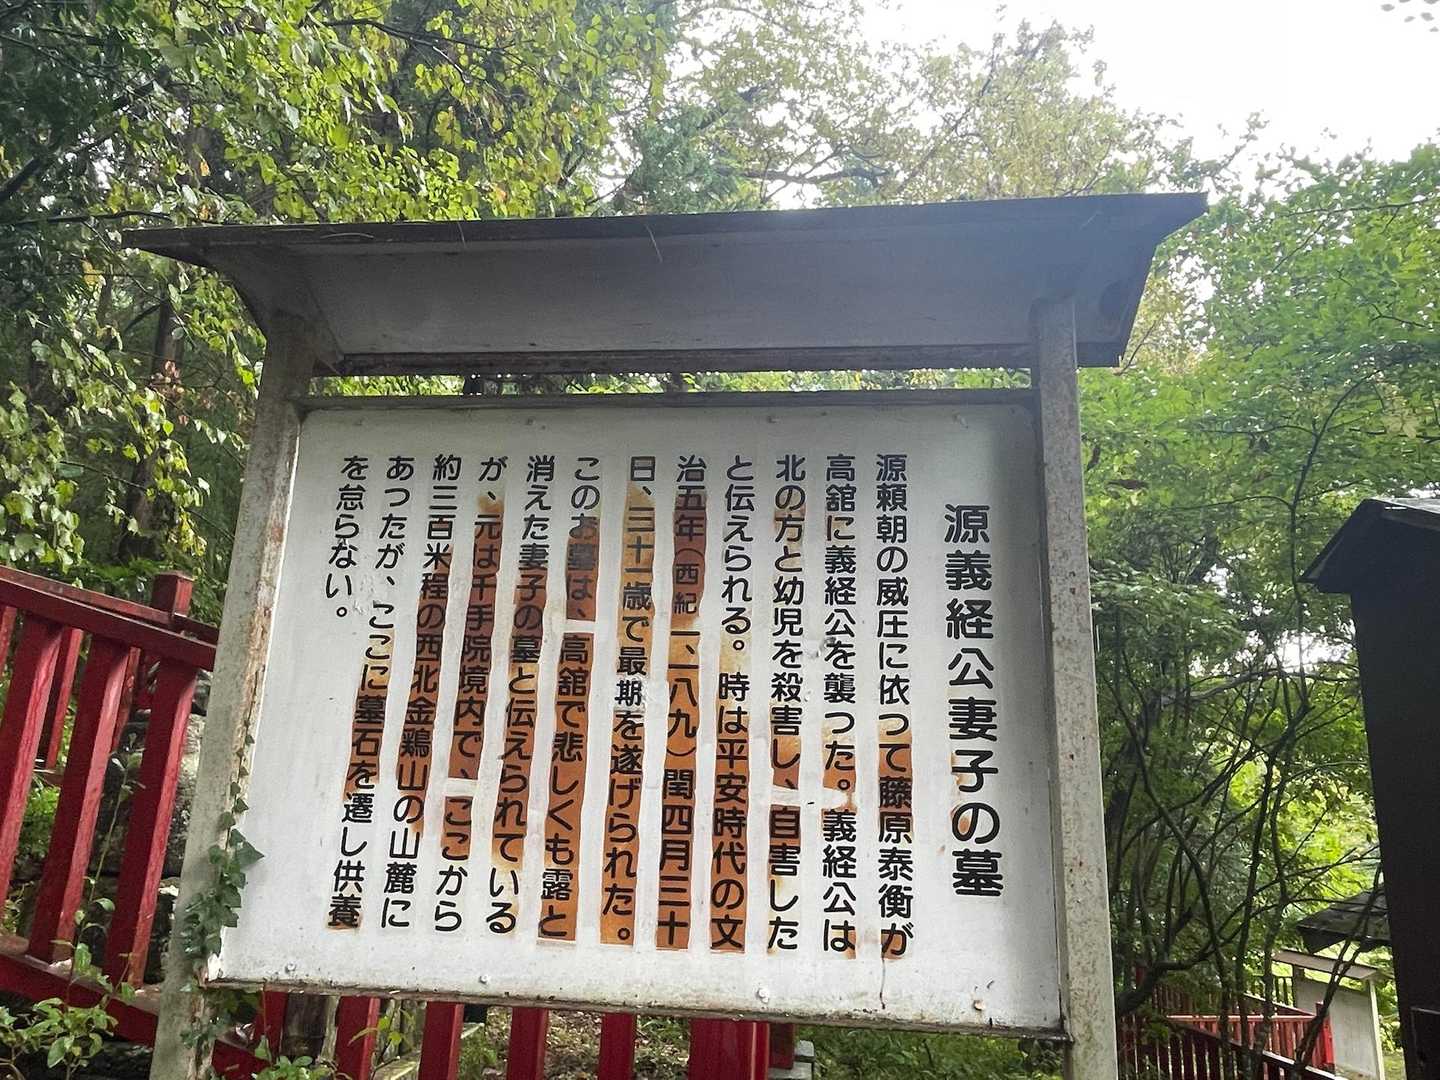 源義経公妻子の墓
源頼朝の威圧に依つて藤原泰衡が
高舘に義経公を襲つた。義経公は
北の方と幼児を殺害し、自害した
と伝えられる。時は平安時代の文
治五年（西紀一、一八九）閏四月三十
日、三十一歳で最期を遂げられた。
このお墓は、高舘で悲しくも露と
消えた妻子の墓と伝えられている
が、元は千手院境内で、ここから
約三百米程の西北金鶏山の山麓に
あつたが、ここに墓石を遷し供養
を怠らない。